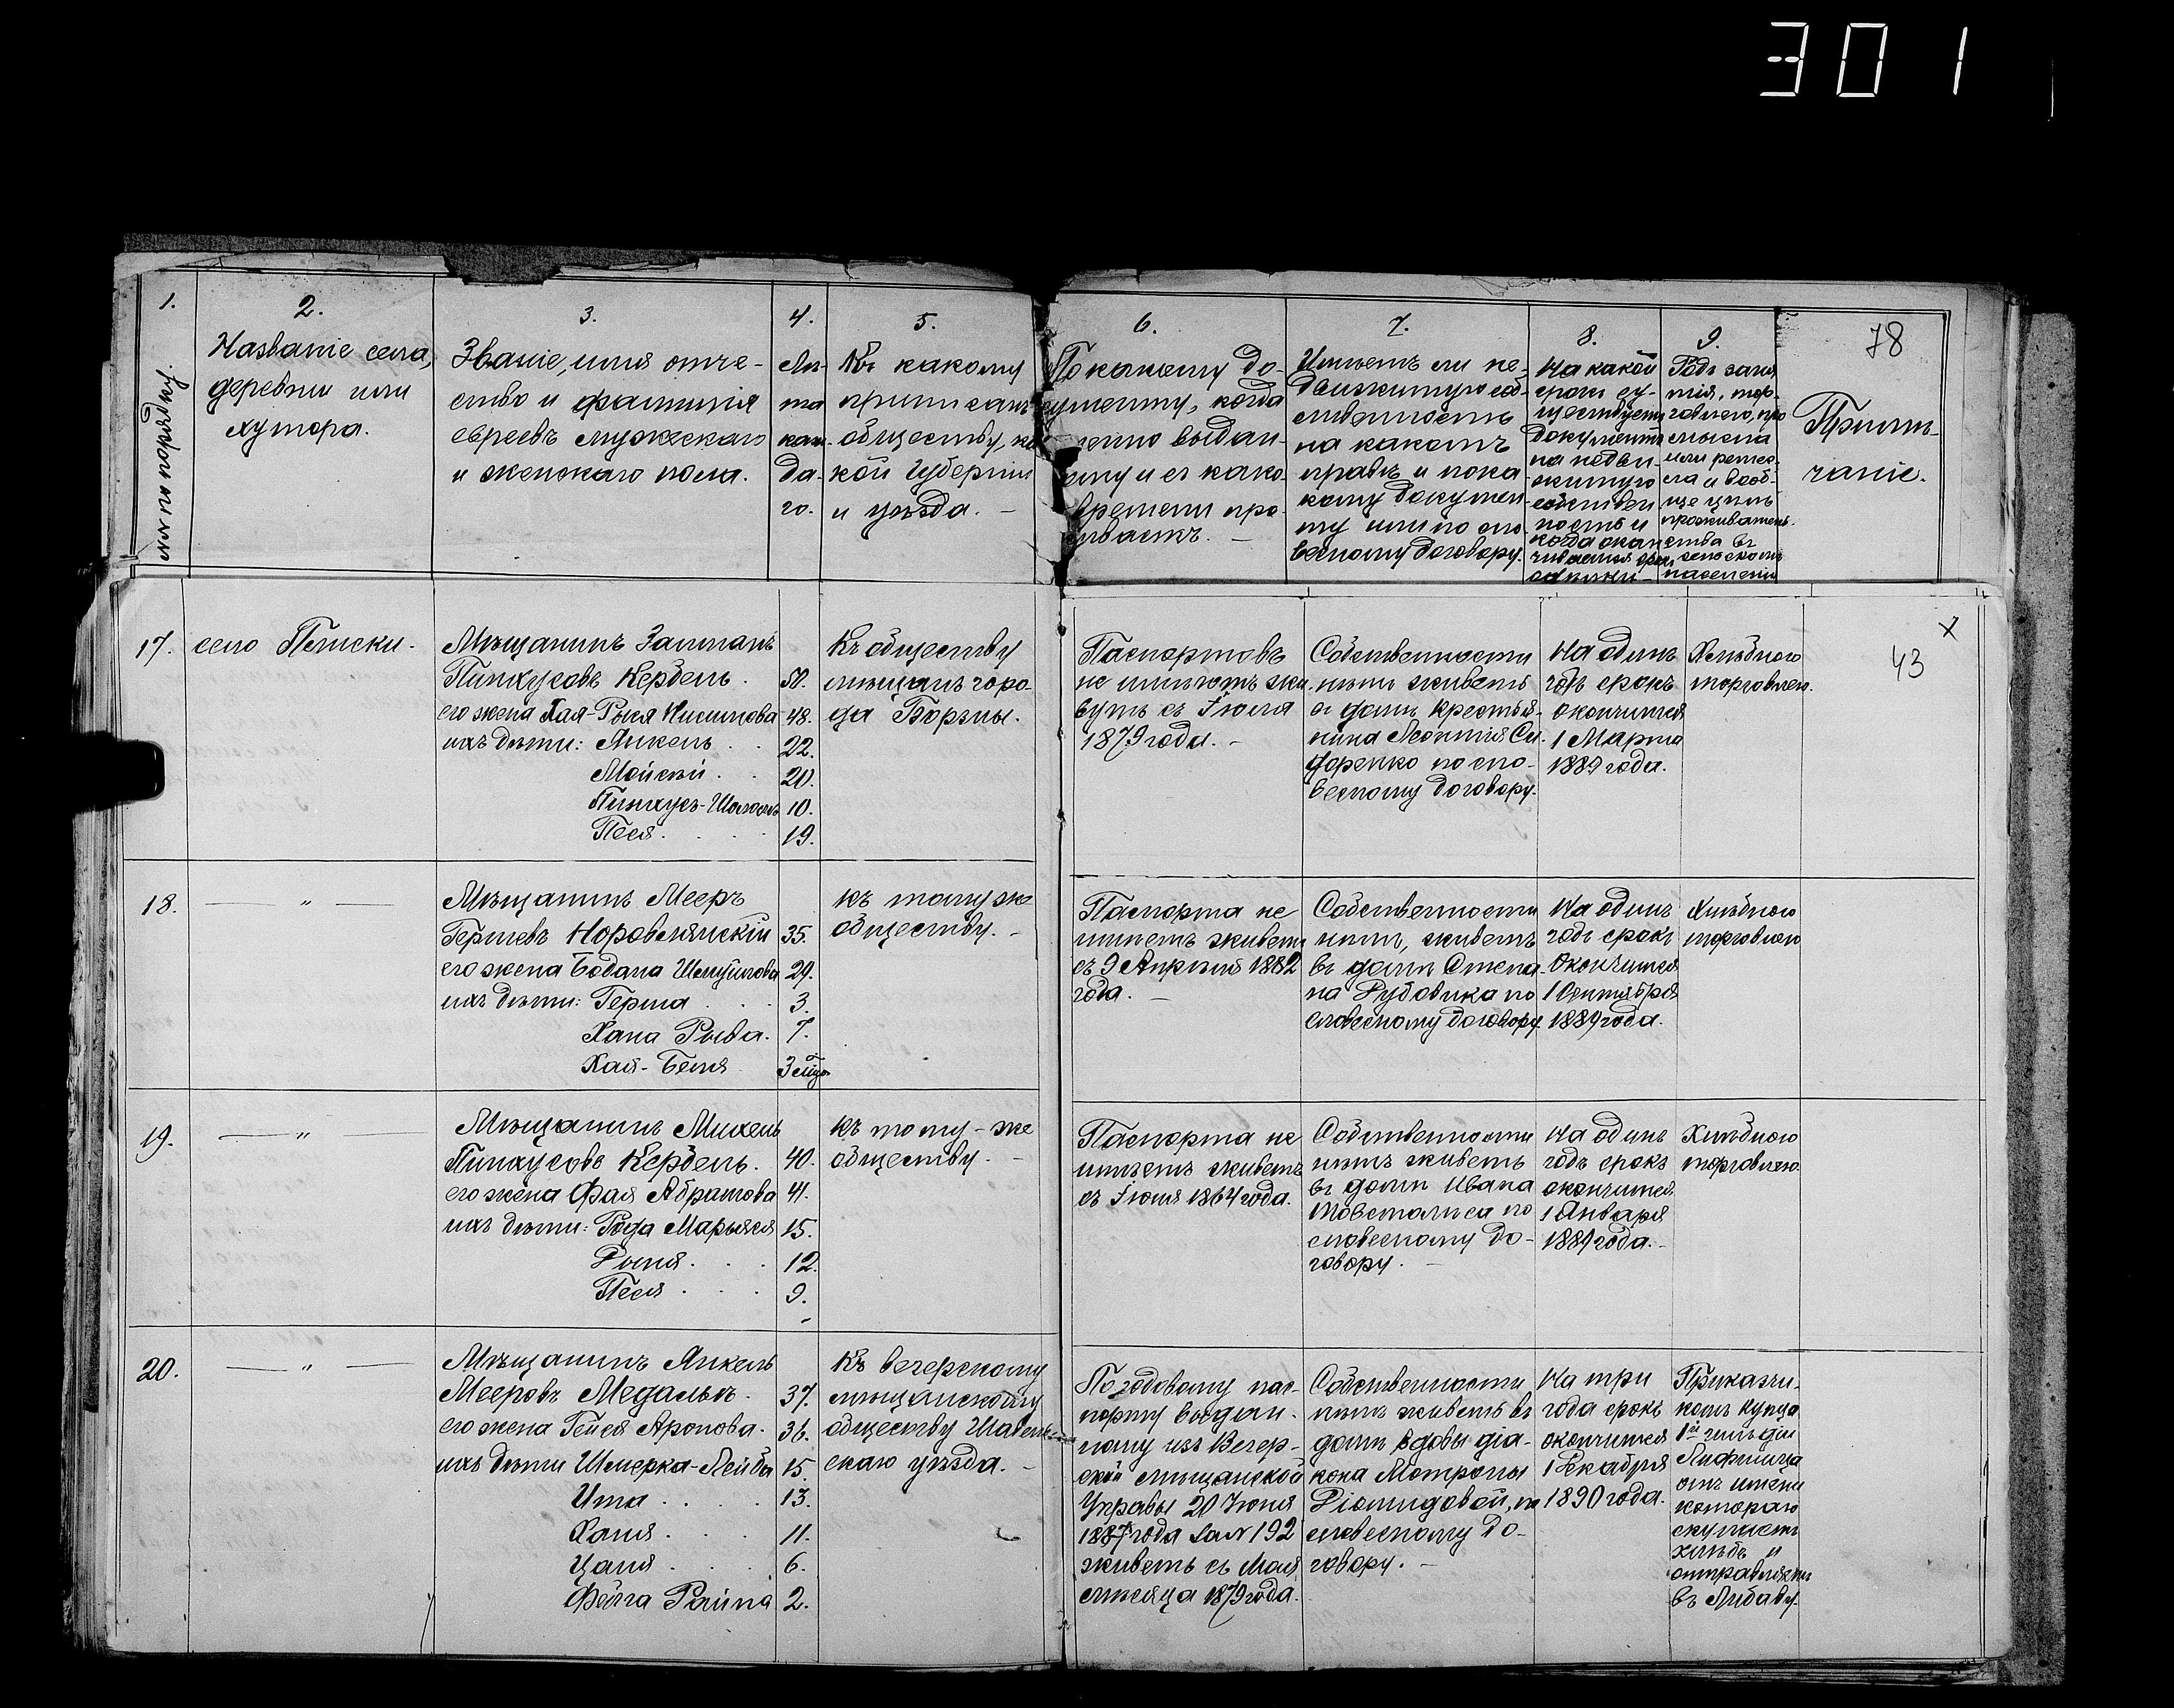 301
1.
№№ по порядку.
2.
Названіе села,
деревни или
хутора.
3.
Званіе, имя отче-
ство и фамилія
евреевъ мужескаго
и женскаго пола.
4.
Лѣ-
та
каж-
да-
го.
5.
Къ какому
приписанъ
обществу, ка-
кой Губерніи
и уѣзда. —
6.
По какому до-
кументу, когда
выдан-
ному и съ како-
времени про-
живаетъ. —
7.
Имѣетъ ли не-
движимую соб-
ственность
на какомъ
правѣ и по ка
кому докумен
ту или по сло
весному договору.
8.
На какой
срокъ су-
ществуетъ
документъ
на недви-
жимую
собствен
ность и
когда окан
чивается срок
9.
Родъ заня
тія, тор-
говлего, про
мысла
или ремес-
ла и вооб-
ще цѣль
проживатель-
ства въ
сельскомъ
населеніи
78
Примѣ-
чаніе.
17.
село Пѣски.
Мѣщанинъ Залманъ
Пинхусовъ Кербель. 50.
его жена Хая-Рыся Нисимова 48.
ихъ дѣти: Янкель . . 22.
Мойсей . . 20.
Пинхусъ-Шоломъ 10.
Песя. . . . 19.
Къ обществу
мѣщанъ горо-
да Борзны.
Паспортовъ
не имѣютъ жи-
вутъ съ Іюля
1879 года. —
Собственности
нѣтъ живетъ
въ домѣ крестья-
нина Леонтія Си-
доренко по сло-
весному договору.
На одинъ
годъ срокъ
окончится
1 Марта
1889 года.
Хлѣбного
торговлею.
х
43
18.
— „ —
Мѣщанинъ Мееръ
Гершевъ Норовлянскій 35.
его жена Бодана 29.
ихъ дѣти: Герша . . . 3.
Хана Рыва. 7.
Хая-Беня
къ тому же
обществу. —
Паспорта не
имѣетъ живетъ
съ 9 Апрѣля 1882
года. —
Собственности
нѣтъ, живетъ
въ домѣ Степа-
на Рудовика по
словесному договору
На одинъ
годъ срокъ
Окончится
1 Сентября
1889 года.
Хлѣбною
торговлею
19.
— „ —
Мѣщанинъ Михель
Пинхусовъ Кербель. 40.
его жена Фая Абрамова 41.
ихъ дѣти: Рода Марьяся 15.
Рыня. . . . 12.
Песя . . . 9.
къ тому-же
обществу. —
Паспорта не
имѣетъ живетъ
съ Іюня 1864 года.
Собственности
нѣтъ живетъ
въ домѣ Ивана
по
словесному до-
говору. —
На одинъ
годъ срокъ
окончится
1 Января
1889 года. —
Хлѣбною
торговлею.
20.
— „ —
Мѣщанинъ Янкель
Мееровъ Медальѣ. 37.
его жена Геися Аронова. 36.
ихъ дѣти Шмерка-Лейба 15.
Ита . . . . 13.
Ханя . . . . 11.
Цаля . . . . 6.
Фейга Райна 2.
Къ вегерскому
мѣщанскому
обществу Шавель-
скаго уѣзда. —
По годовому пас-
порту выдан-
ному изъ Вегер-
ской мѣщанской
Управы 20 Іюня
1887 года за № 192
живетъ съ Мая
мѣсяца 1879 года.
Собственности
нѣтъ живетъ въ
домѣ вдовы діа-
кона Мотроны
Діомидовой, по
словесному до-
говору. —
На три
года срокъ
окончится
1 Декабря
1890 года.
Приказчи-
комъ купца
1й гильдіи
Лифшица
отъ имени
котораго
скупаетъ
хлѣбъ и
отправляетъ
въ Либаву.